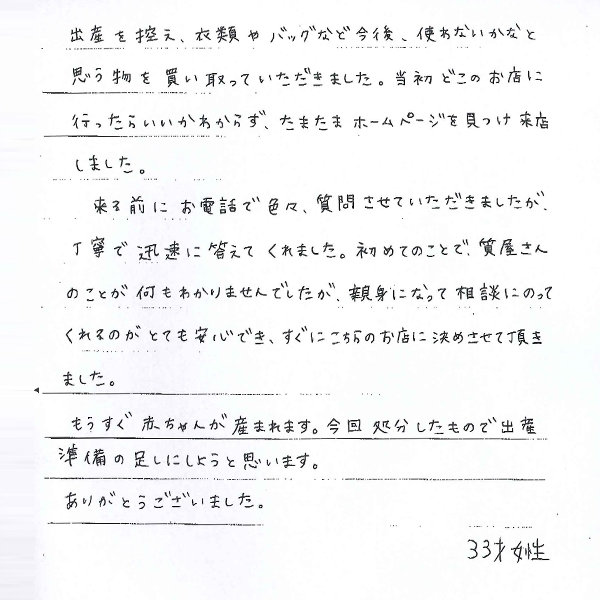 出産を控え、衣類やバッグなど今後、使わないかなと
思う物を買い取っていただきました。当初どこのお店に
行ったらいいかわからず、たまたまホームページを見つけ来店
しました。
来る前にお電話で色々、質問させていただきましたが、
丁寧で迅速に答えてくれました。初めてのことで、質屋さん
のことが何もわかりませんでしたが、親身になって相談にのって
くれるのがとても安心でき、すぐにこちらのお店に決めさせて頂き
ました。
もうすぐ赤ちゃんが産まれます。今回処分したもので出産
準備の足しにしようと思います。
ありがとうございました。
33才女性